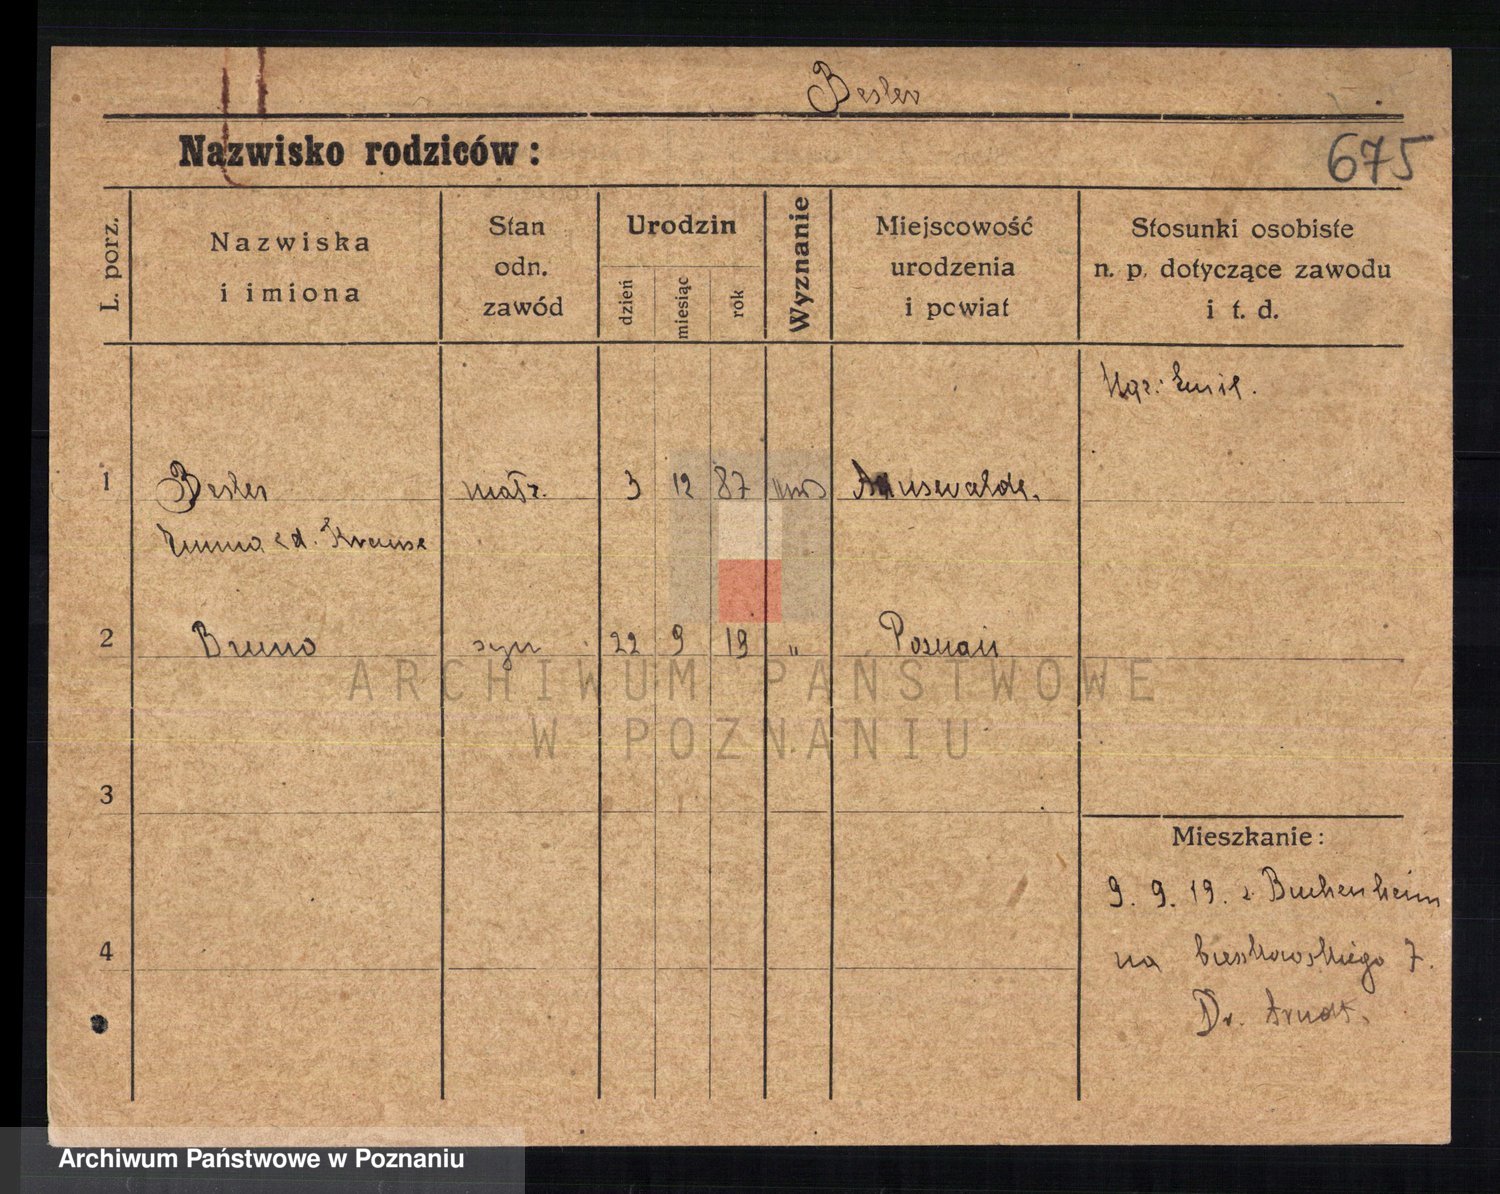 Besler
Nazwisko rodziców:
675
L. porz.
Nazwiska
i imiona
Stan
odn.
zawód
Urodzin
dzień
miesiąc
rok
Wyznanie
Miejscowość
urodzenia
i powiat
Stosunki osobiste
n. p. dotyczące zawodu
i t. d.
Emil.
1 Besler małż. 3 12 87 Arnswalde.
Emma Krause
2 Bruno syn 22 9 19 " Poznań
ARCHIWUM PAŃSTWOWE
W POZNANIU
3
Mieszkanie:
9. 9. 19. z Buchenheim
4
na 7.
Dr. Arndt.
Archiwum Państwowe w Poznaniu